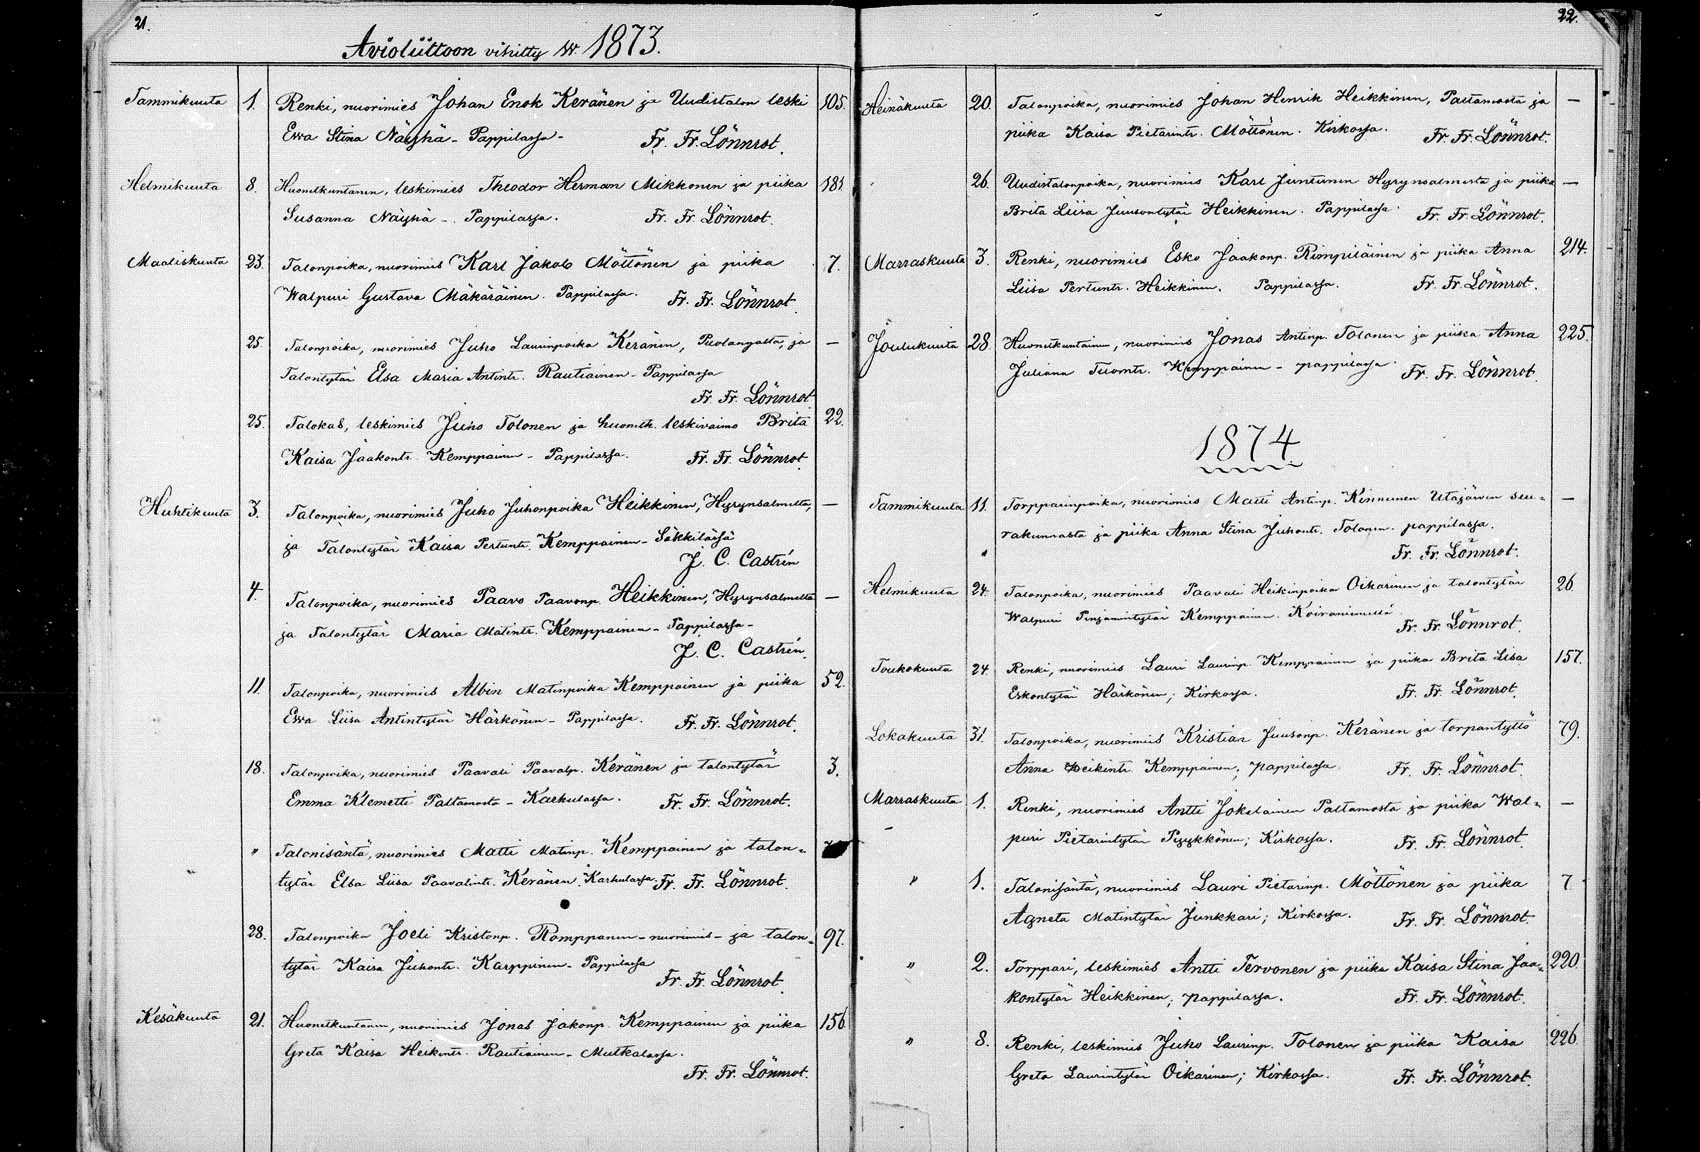 21.
Avioliittoon vihitty v. 1873.
Tammikuuta 1. Renki, nuorimies Johan Enok Keränen ja Uudistalon leski 105.
Ewa Stina Näyhä - Pappilassa - Fr. Fr. Lönnrot.
Helmikuuta 8. Huonetkuntanen, leskimies Theodor Herman Mikkonen ja piika 181
Susanna Näyhä - Pappilassa. Fr. Fr. Lönnrot.
Maaliskuuta 23. Talonpoika, nuorimies Karl Jakob Möttönen ja piika 7.
Walpuri Gustava Mäkäräinen. Pappilassa. Fr. Fr. Lönnrot.
25. Talonpoika, nuorimies Juho Laurinpoika Keränen, Puolangalta, ja —
Talontytär Elsa Maria Antintr. Rautiainen - Pappilassa
Fr. Fr. Lönnrot
25. Talokas, leskimies Juho Tolonen ja huoneth. leskivaimo Brita 22.
Kaisa Jaakontr. Kemppainen - Pappilassa. Fr. Fr. Lönnrot.
Huhtikuuta 3. Talonpoika, nuorimies Juho Juhonpoika Heikkinen, Hyrynsalmelta, —
ja Talontytär Kaisa Pertuntr. Kemppainen - Säkkilässä
J. C. Castrén
4. Talonpoika, nuorimies Paavo Paavonp. Heikkinen, Hyrynsalmelta —
ja Talontytär Maria Matintr. Kemppainen - Pappilassa -
J. C. Castrén.
11. Talonpoika, nuorimies Albin Matinpoika Kemppainen ja piika 52.
Ewa Liisa Antintytär Härkönen - Pappilassa. Fr. Fr. Lönnrot.
18. Talonpoika, nuorimies Paavali Paavalp. Keränen ja talontytär 3.
Emma Klemetti Paltamosta - Karhulassa. Fr. Fr. Lönnrot.
" Talonisäntä, nuorimies Matti Matinp. Kemppainen ja talon-
tytär Elsa Liisa Paavalintr. Keränen. Karhulassa. Fr. Fr. Lönnrot.
28. Talonpoika Joeli Kristonp. Romppanen - nuorimies - ja talon- 97.
tytär Kaisa Juhontr. Karppinen - Pappilassa
Fr. Fr. Lönnrot.
Kesäkuuta 21. Huonetkuntanen, nuorimies Jonas Jakonp. Kemppainen ja piika 156
Greta Kaisa Heikintr. Rautiainen - Mutkalassa.
Fr. Fr. Lönnrot.
22.
Heinäkuuta 20. Talonpoika, nuorimies Johan Henrik Heikkinen, Paltamosta ja —
piika Kaisa Pietarintr. Möttönen. Kirkossa. Fr. Fr. Lönnrot.
26. Uudistalonpoika, nuorimies Karl Juntunen Hyrynsalmesta ja piika —
Brita Liisa Juusontytär Heikkinen. Pappilassa. Fr. Fr. Lönnrot.
Marraskuuta 3. Renki, nuorimies Esko Jaakonp. Rimpiläinen ja piika Anna 214.
Liisa Pertuntr. Heikkinen. Pappilassa. Fr. Fr. Lönnrot.
Joulukuuta 28. Huonetkuntainen, nuorimies Jonas Antinp. Tolonen ja piika Anna 225.
Juliana Tuomtr. Kemppainen - pappilassa. Fr. Fr. Lönnrot.
1874
Tammikuuta 11. Torpparinpoika, nuorimies Matti Antinp. Kinnunen Utajärven seu- —
rakunnasta ja piika Anna Stina Juhontr. Tolonen. pappilassa.
Fr. Fr. Lönnrot.
Helmikuuta 24. Talonpoika, nuorimies Paavali Heikinpoika Oikarinen ja talontytär 26
Walpuri Pinjamintytär Kemppainen. Koiraniemellä. Fr. Fr. Lönnrot.
Toukokuuta 24. Renki, nuorimies Lauri Laurinp. Kemppainen ja piika Brita Lisa 157.
Eskontytär Härkönen; Kirkossa. Fr. Fr. Lönnrot.
Lokakuuta 31. Talonpoika, nuorimies Kristian Juusonp. Keränen ja torpantyttö 79.
Anna Heikintr. Kemppainen; pappilassa. Fr. Fr. Lönnrot.
Marraskuuta 1. Renki, nuorimies Antti Jokelainen Paltamosta ja piika Wal- —
puri Pietarintytär Pyykkönen; Kirkossa. Fr. Fr. Lönnrot.
" 1. Talonisäntä, nuorimies Lauri Pietarinp. Möttönen ja piika 7
Agneta Matintytär Junkkari; Kirkossa. Fr. Fr. Lönnrot.
" 2. Torppari, leskimies Antti Tervonen ja piika Kaisa Stina Jaa- 220.
kontytär Heikkinen; pappilassa. Fr. Fr. Lönnrot.
" 8. Renki, leskimies Juho Laurinp. Tolonen ja piika Kaisa 226
Greta Laurintytär Oikarinen; Kirkossa. Fr. Fr. Lönnrot.